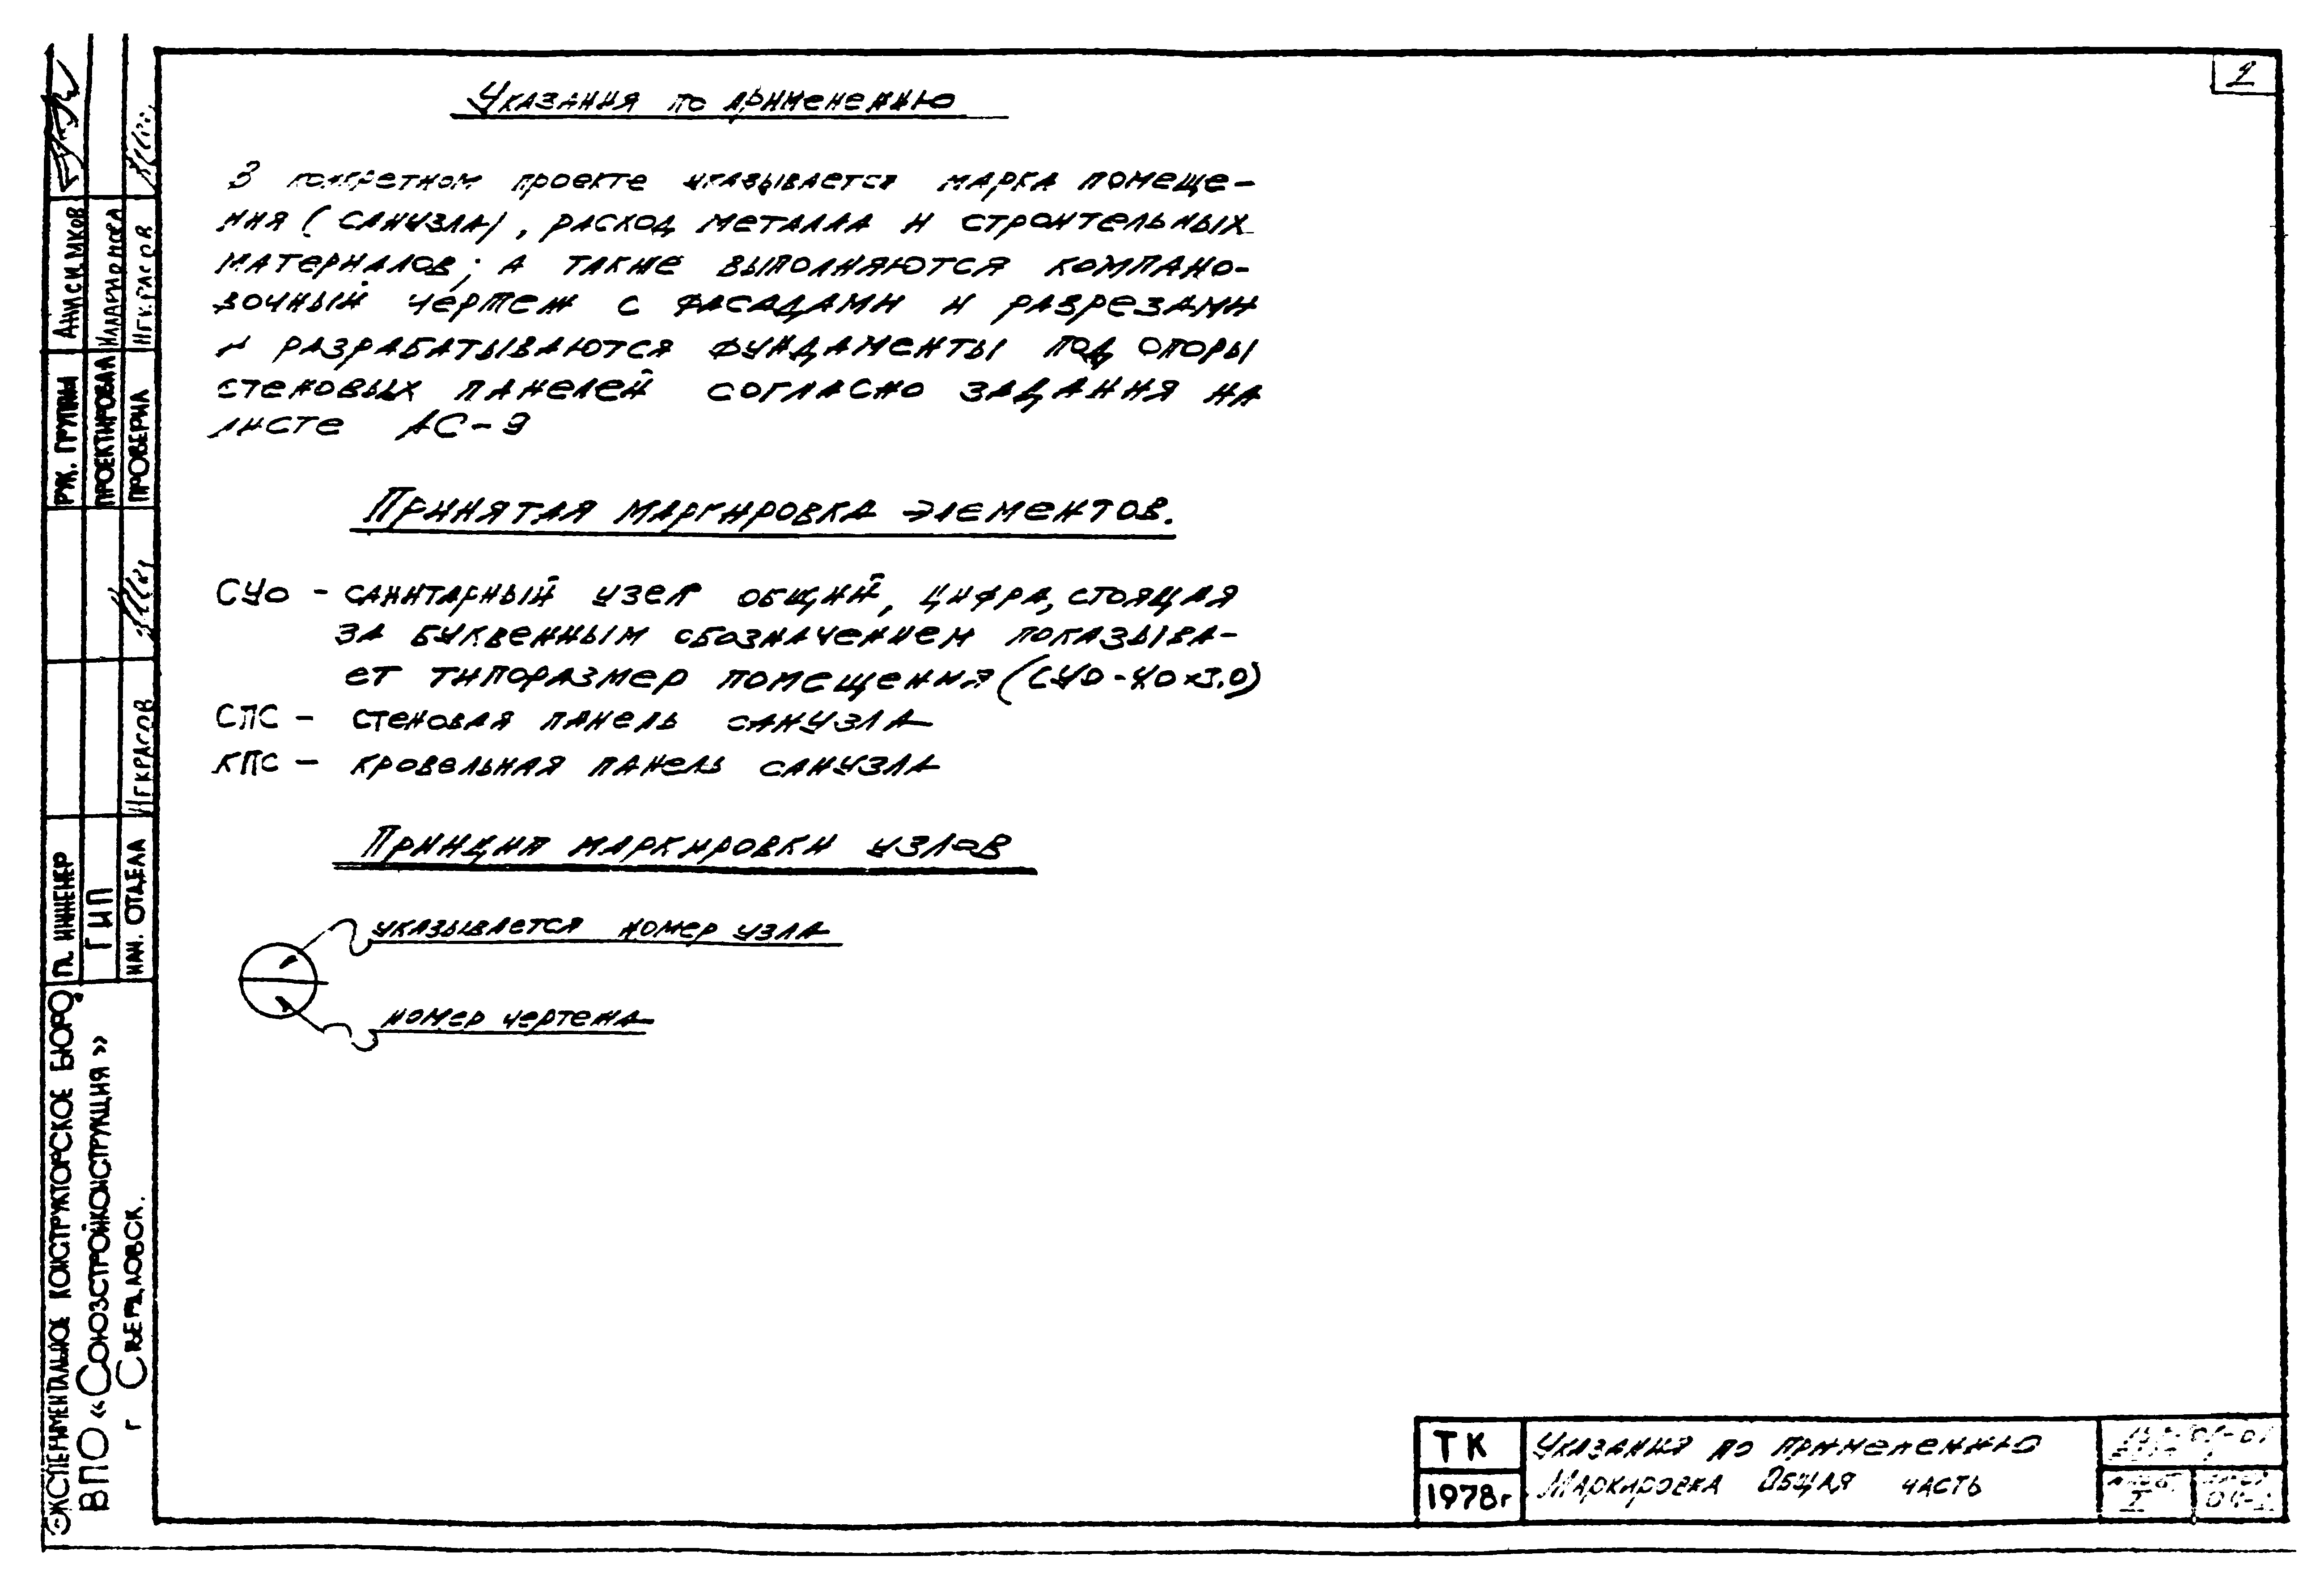 Указания по применению
В конкретном проекте указывается марка помеще-
ния (санузла), расход металла и строительных
материалов; а также выполняются компано-
вочный чертеж с фасадами и разрезами
и разрабатываются фундаменты под опоры
стеновых панелей согласно задания на
листе АС-9
Принятая маркировка элементов.
СУО - санитарный узел общий, цифра, стоящая
за буквенным обозначением показыва-
ет типоразмер помещения (СУО-
СПС - стеновая панель санузла
КПС - кровельная панель санузла
Принцип маркировки узлов
указывается номер узла
номер чертежа
ТК
1978г
Указания по применению
Маркировка Общая часть
РУК. ГРУППЫ Анисимков
ПРОЕКТИРОВАЛ Илларионова
ПРОВЕРИЛ Некрасов
ГЛ. ИНЖЕНЕР
ГИП
НАЧ. ОТДЕЛА Некрасов
ЭКСПЕРИМЕНТАЛЬНОЕ КОНСТРУКТОРСКОЕ БЮРО
ВПО «СОЮЗСТРОЙКОНСТРУКЦИЯ»
г СВЕРДЛОВСК.